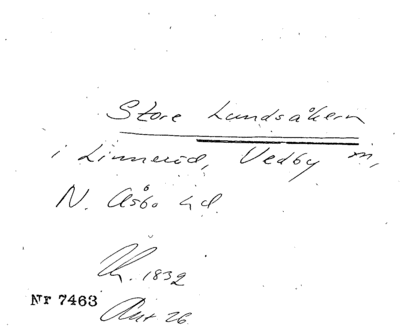 Store Lundsåkern
i Linneröd, Vedby m,
N. Åsbo hd.
Th. 1832
Nr 7463
Ant 26